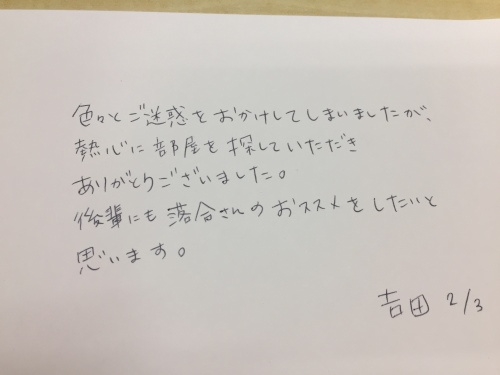 色々とご迷惑をおかけしてしまいましたが、
熱心に部屋を探していただき
ありがとうございました。
後輩にも落合さんのおススメをしたいと
思います。
吉田 2/3